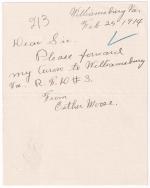 Williamsburg Va.
Feb 25 1914
Dear Sir.
Please forward
my Cards to Williamsburg
Va. R. F. D # 3.
From
Esther Moose.